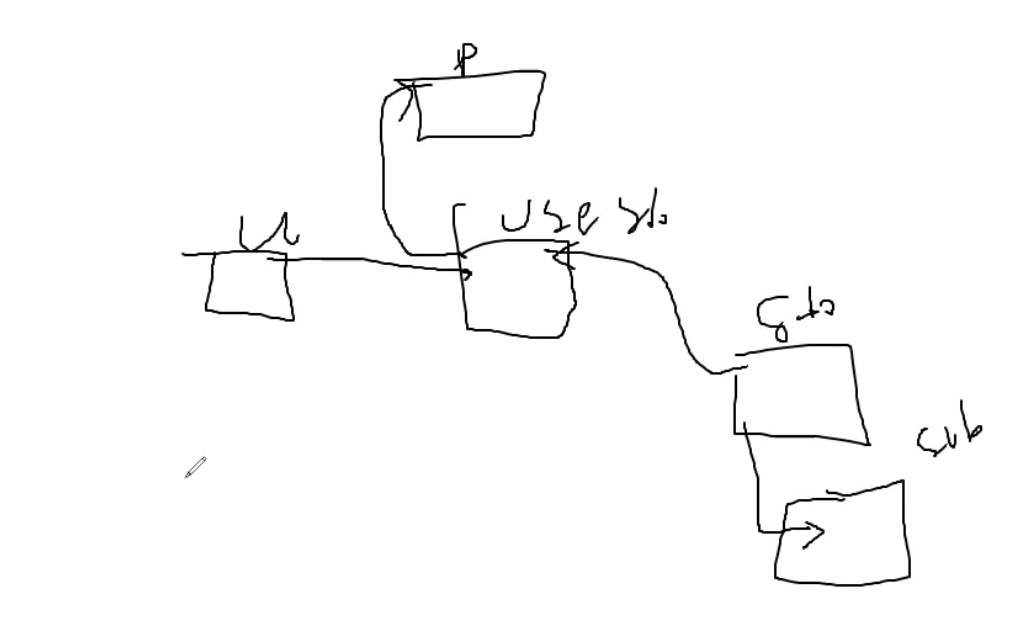 P
UI
use sto
sto
sub